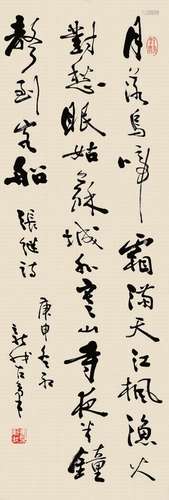 月落烏啼霜滿天江楓漁火
對愁眠姑蘇城外寒山寺夜半鐘
聲到客船 張繼詩
庚申春
新我左筆